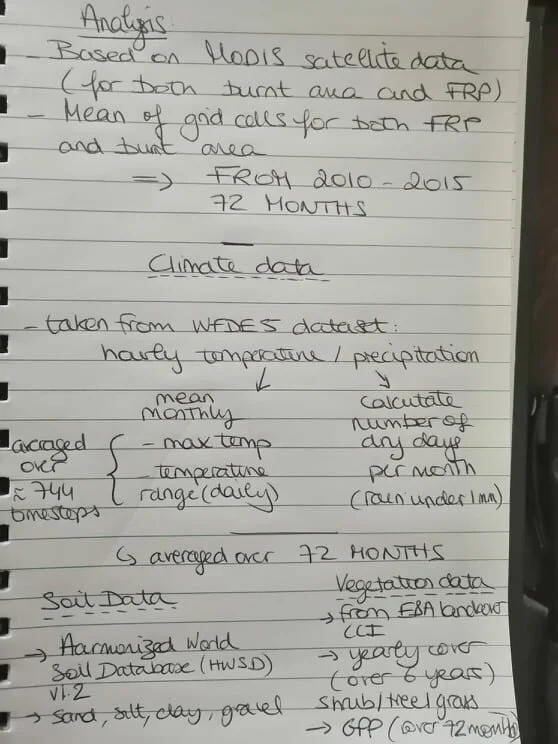 Analysis:
- Based on MODIS satellite data
(for both burnt area and FRP)
- Mean of grid cells for both FRP
and burnt area
=> FROM 2010-2015
72 MONTHS
Climate data
- taken from WFDE5 dataset:
hourly temperature / precipitation
mean
monthly
- max temp
- temperature
range (daily)
averaged
over
≈ 744
timesteps
calculate
number of
dry days
per month
(rain under 1mm)
↳ averaged over 72 MONTHS
Soil Data
→ Harmonized World
Soil Database (HWSD)
v1.2
→ sand, silt, clay, gravel
Vegetation data
→ from ESA landcover
CCI
→ yearly cover
(over 6 years)
shrub/tree/grass
→ GPP (over 72 months)